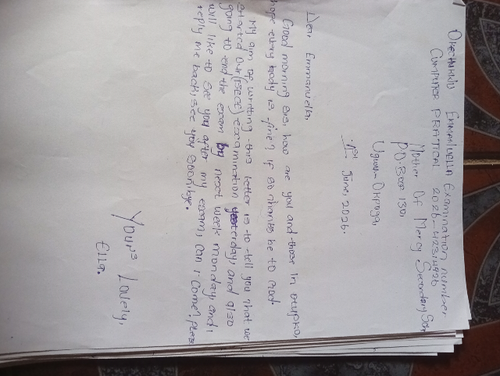 Emmanuella Examination number
Computer PRACTICAL
Mother Of Mercy Secondary
P.O. Box 130,
June, 2026.
Dear Emmanuella,
Good morning and how are you and those in
every body is fine? If so thanks be to God
My aim of writing this letter is to tell you that we
started our examination yesterday, and also
going to end the exam by next week monday, and i
will like to see you after my exam, can i come? pls
reply me back, see you soonly.
Your's Lovely,
Ella.